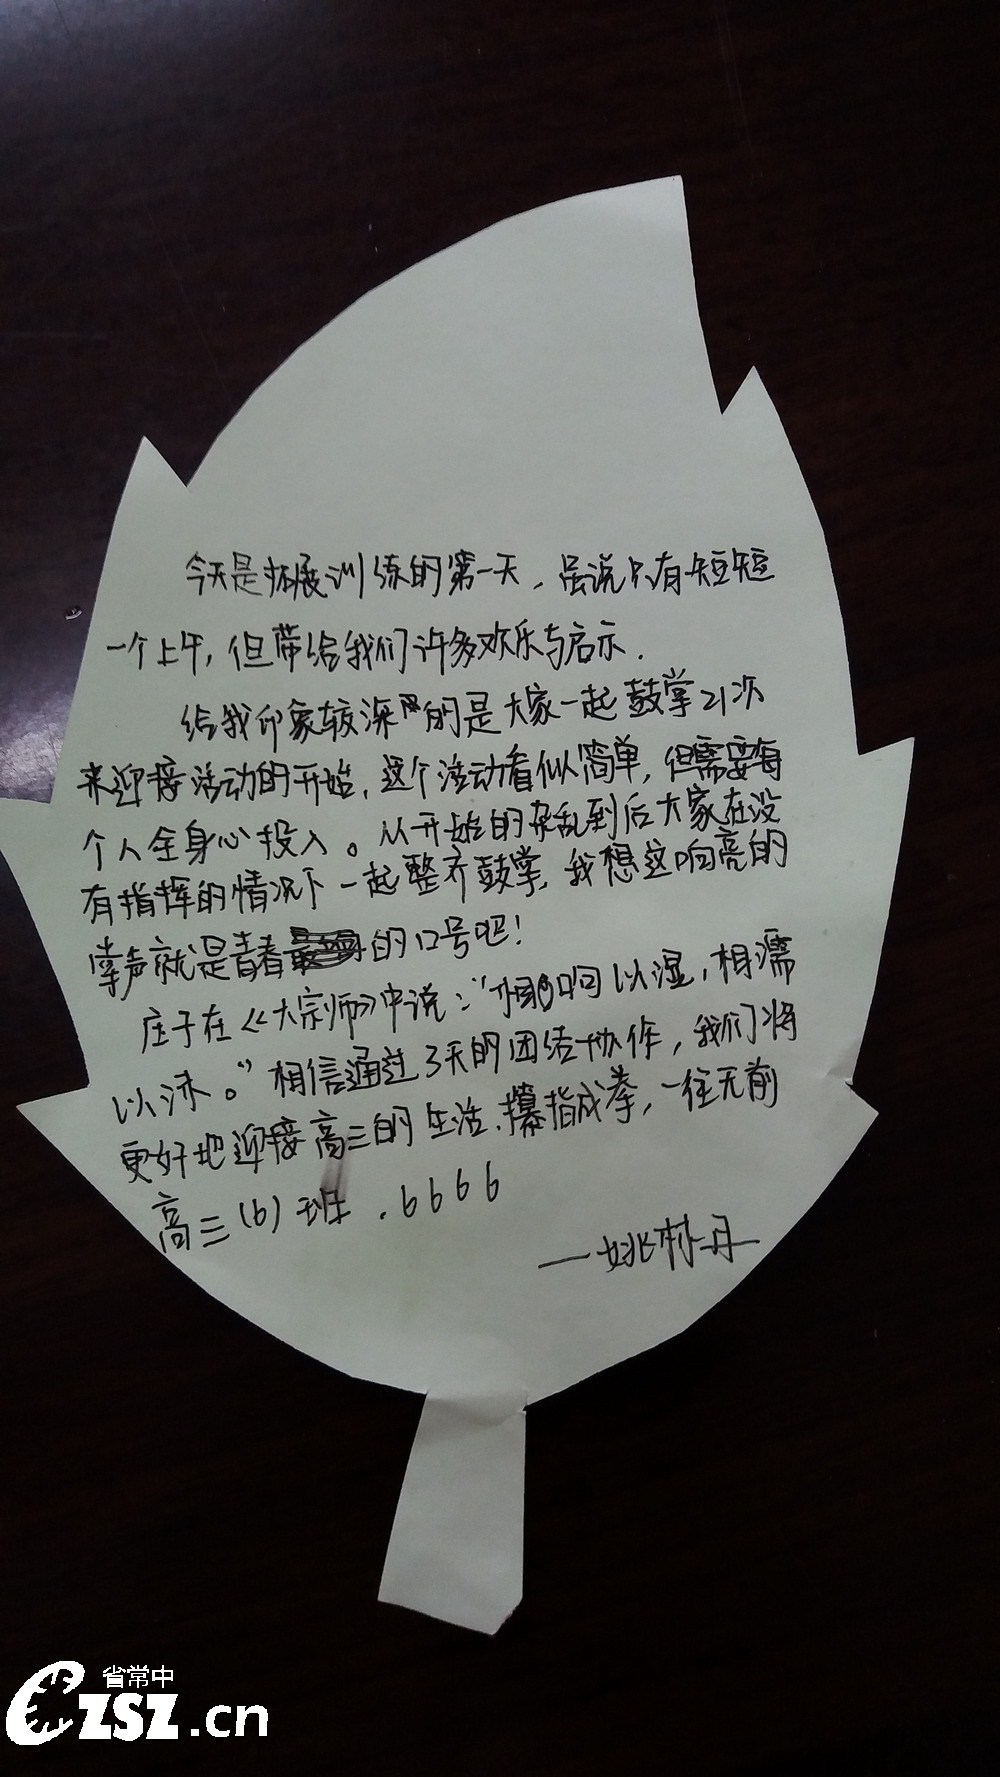 今天是拓展训练的第一天，虽说只有短短
一个上午，但带给我们许多欢乐与启示.
给我印象较深的是大家一起鼓掌21次
来迎接活动的开始，这个活动看似简单，但需要每
个人全身心投入。从开始的杂乱到后大家在没
有指挥的情况下一起整齐鼓掌，我想这响亮的
掌声就是青春的口号吧！
庄子在《大宗师》中说：“相呴以湿，相濡
以沫。”相信通过3天的团结协作，我们将
更好地迎接高三的生活.攥指成拳，一往无前
高三(6)班.6666
——姚林丹
省常中
CZSZ.cn